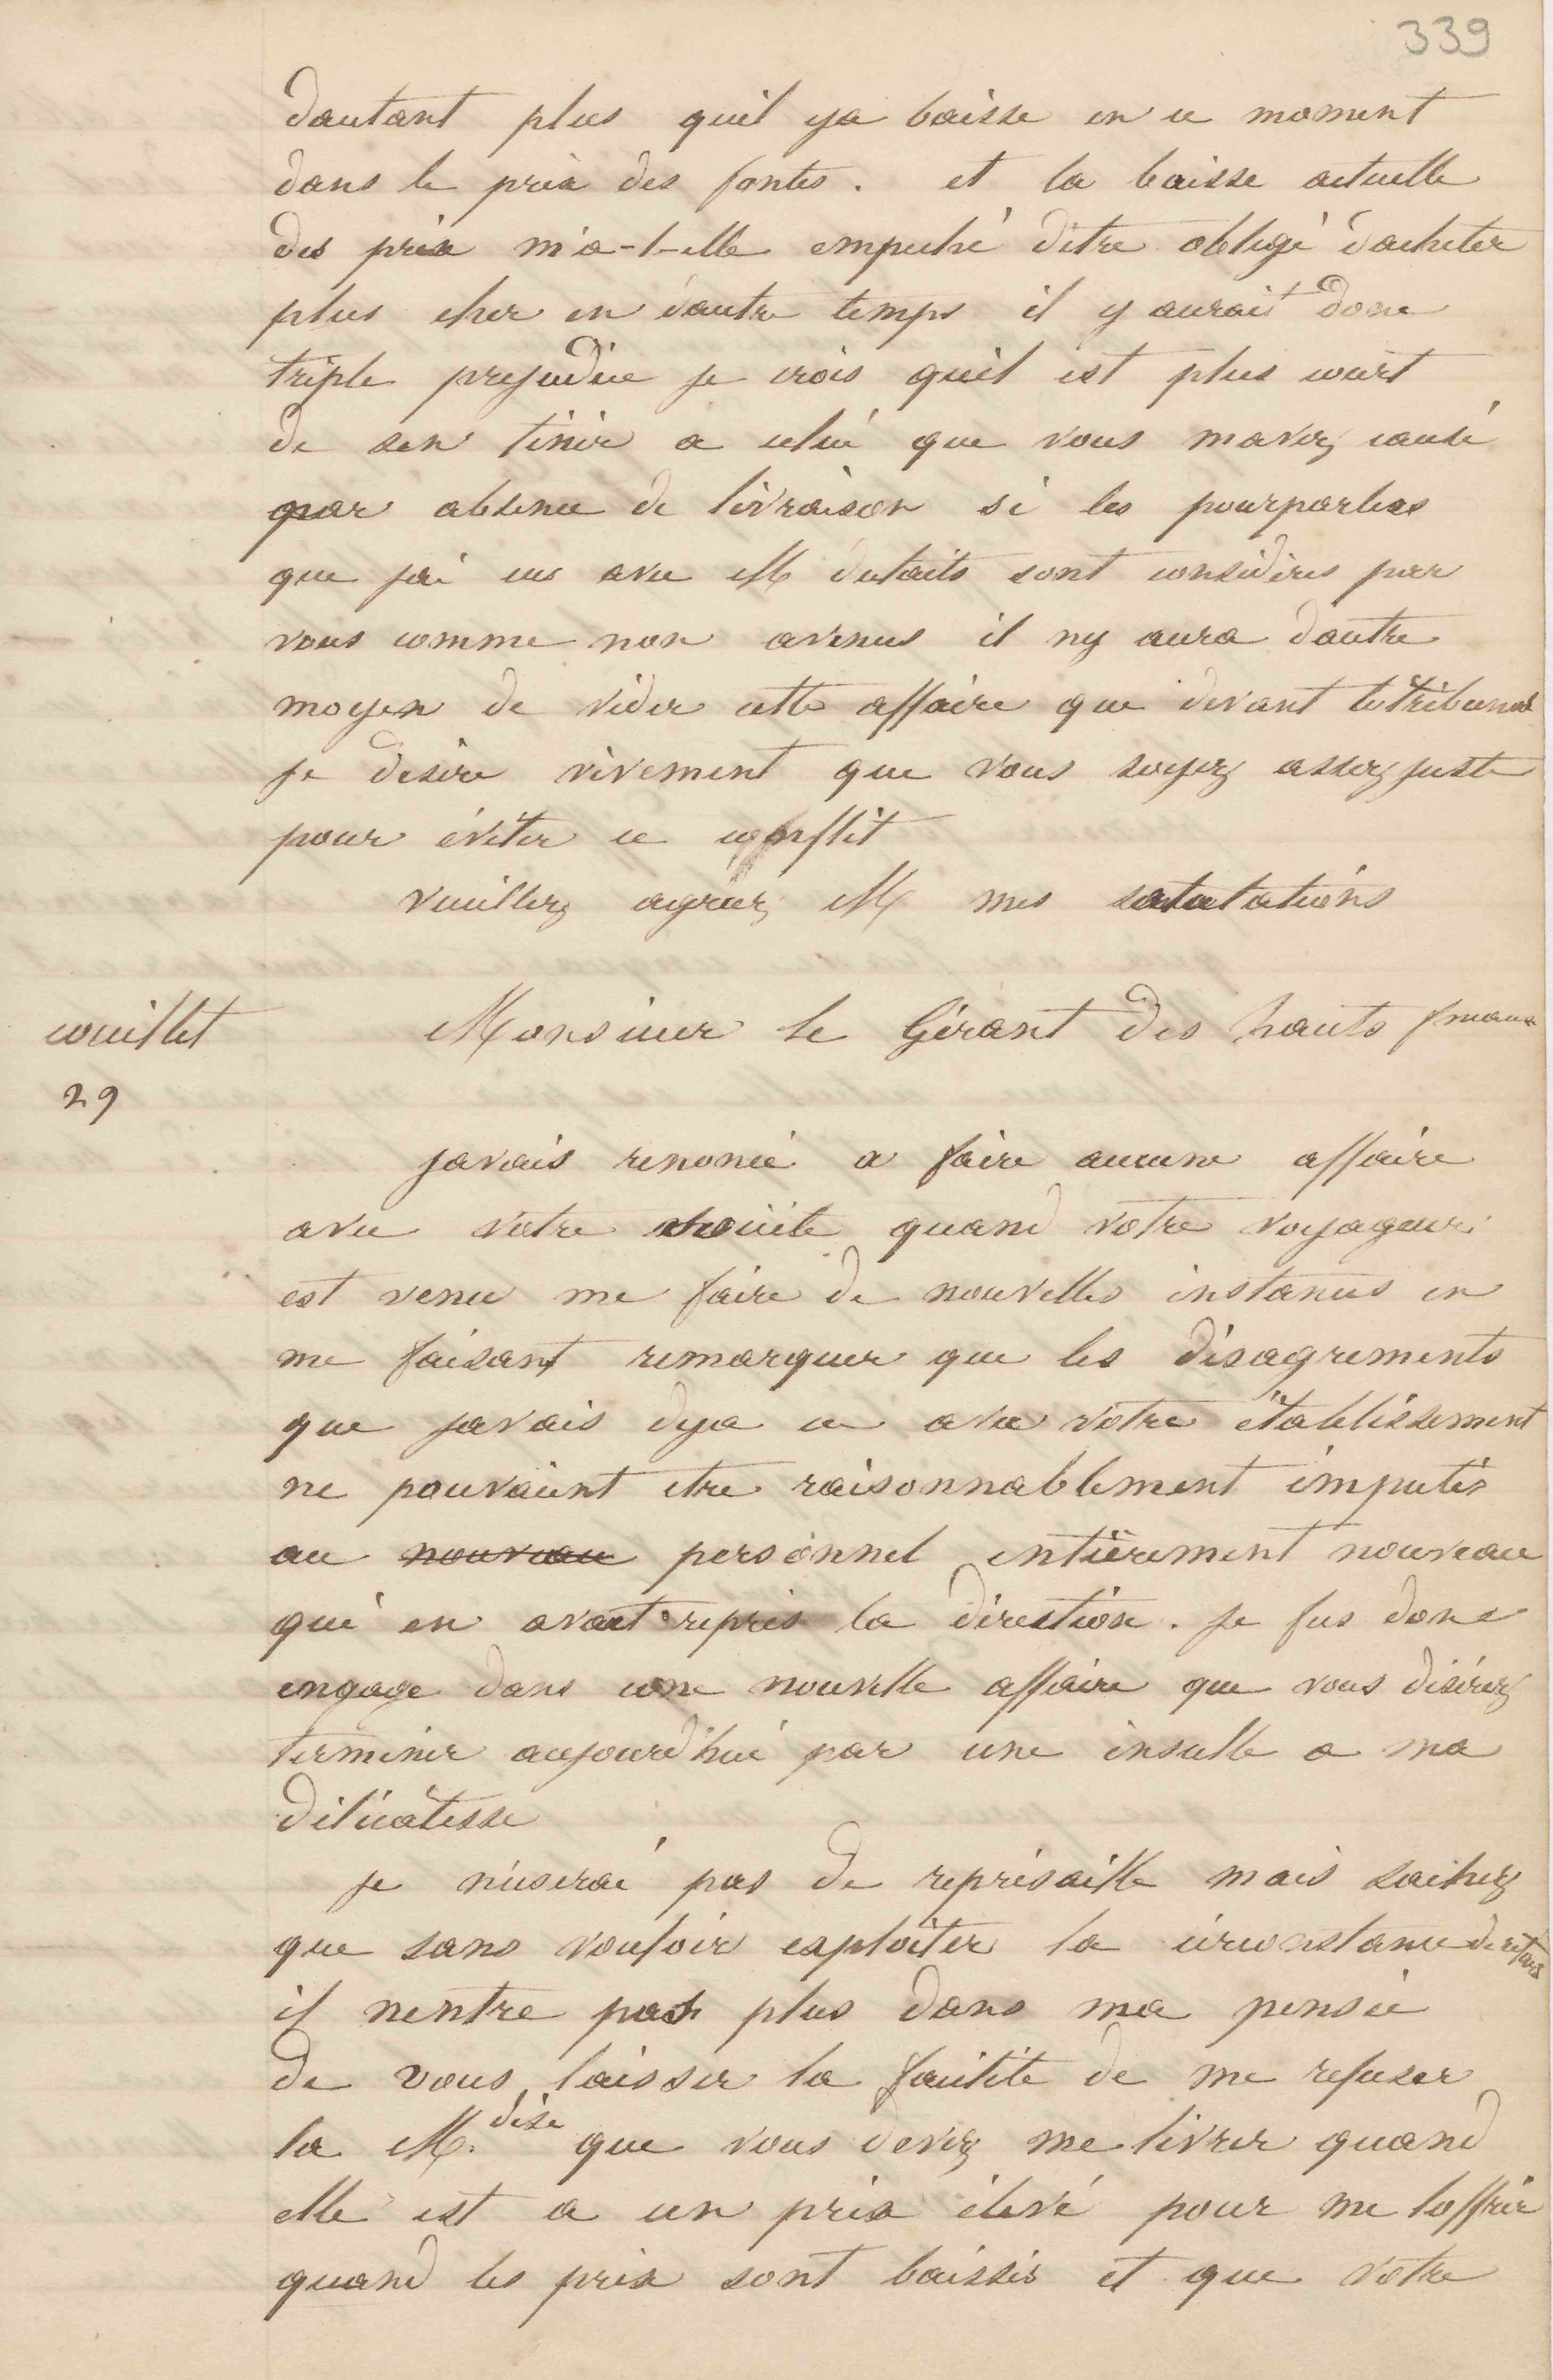 339
dautant plus quil ya baisse en ce moment
dans le prix des fontes. et la baisse actuelle
des prix m'a-t-elle empeché detre obligé dacheter
plus cher en dautre temps il y aurait donc
triple prejudice je crois quil est plus court
de sen tenir a celui que vous mavez causé
par absence de livraison si les pourparlers
que jai eus avec M dutaits sont considéres par
vous comme non avenus il ny aura dautre
moyen de vider cette affaire que devant le tribunal
je desire vivement que vous soyez assez juste
pour éviter ce conflit
veuillez agréez M mes salutations
couillet
29
Monsieur le Gérant des hauts fourneaux
javais renoncé a faire aucune affaire
avec votre société quand votre voyageur
est venu me faire de nouvelles instances en
me faisant remarquer que les désagrements
que javais deja eu avec votre établissement
ne pouvaient etre raisonnablement imputés
au nouveau personnel entièrement nouveau
qui en avait repris la direction. je fus donc
engage dans une nouvelle affaire que vous désirez
terminer aujourd'hui par une insulte a ma
délicatesse
je n'userai pas de représaille mais sachez
que sans vouloir exploiter la circonstance de retard
il nentre pas plus dans ma pensée
de vous laisser la facilité de me refuser
la M.dise que vous devez me livrer quand
elle est a un prix élevé pour me loffrir
quand les prix sont baissés et que votre